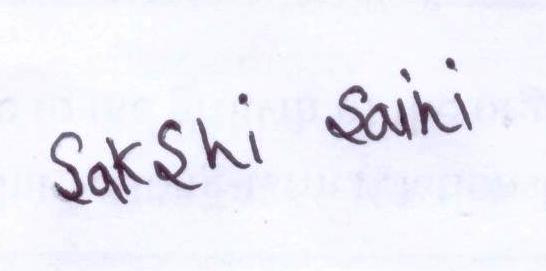 Sakshi Saini